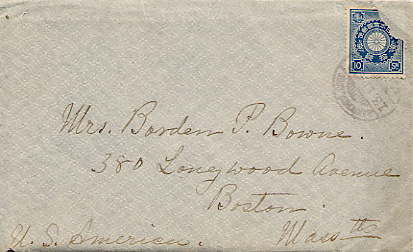 Mrs. Borden P. Bowne.
380 Longwood Avenue
Boston.
U. S. America. Masstts
10 10